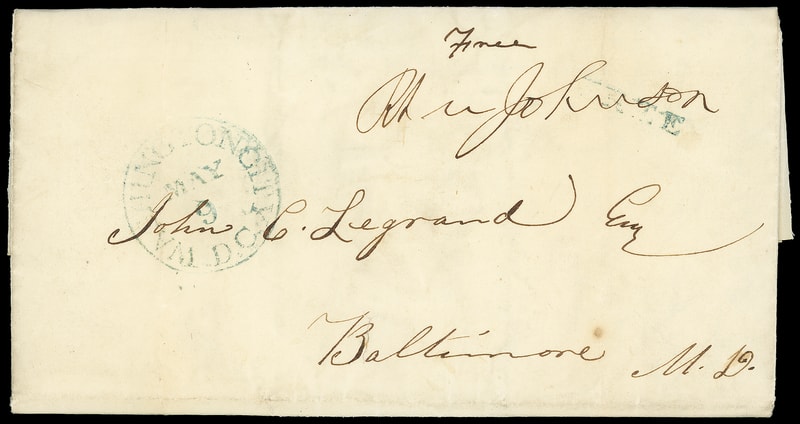 Free
Rh M Johnson
WASHINGTON CITY D.C.
MAY
9
John C. Legrand Esq
Baltimore M.D.